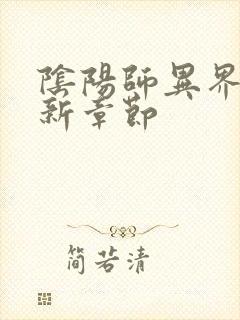 陰陽師異界
新章節
简若清